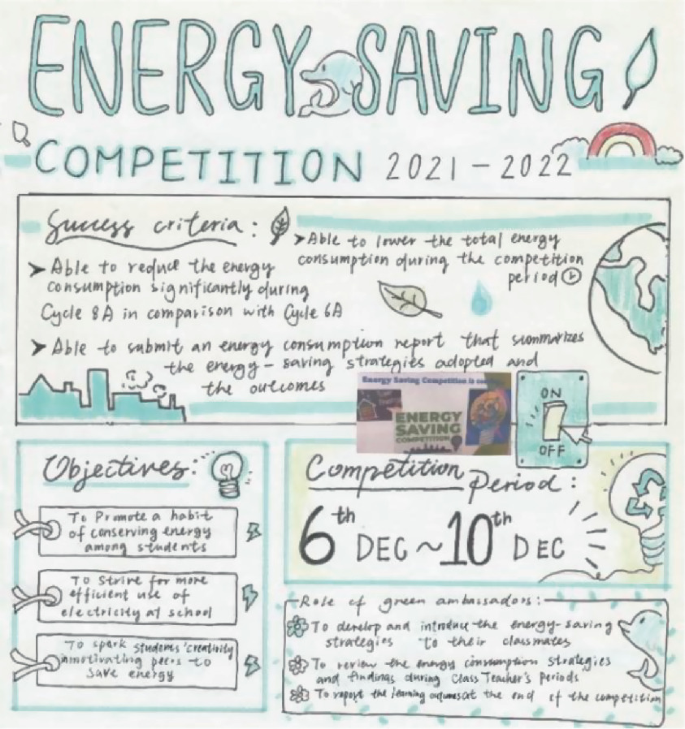 ENERGY SAVING
COMPETITION 2021-2022
Success criteria:
➤ Able to reduce the energy
consumption significantly during
Cycle 8A in comparison with Cycle 6A
➤ Able to lower the total energy
consumption during the competition
period
➤ Able to submit an energy consumption report that summarizes
the energy-saving strategies adopted and
the outcomes
Energy Saving Competition is
ENERGY
SAVING
COMPETITION
ON
OFF
Objectives:
To Promote a habit
of conserving energy
among students
To Strive for more
efficient use of
electricity at school
To spark students' creativity
in motivating peers to
save energy
Competition period:
6th DEC ~ 10th DEC
Role of green ambassadors:
To develop and introduce the energy-saving
strategies to their classmates
To review the energy consumption strategies
and findings during Class Teacher's Periods
To report the learning outcomes at the end of the competition